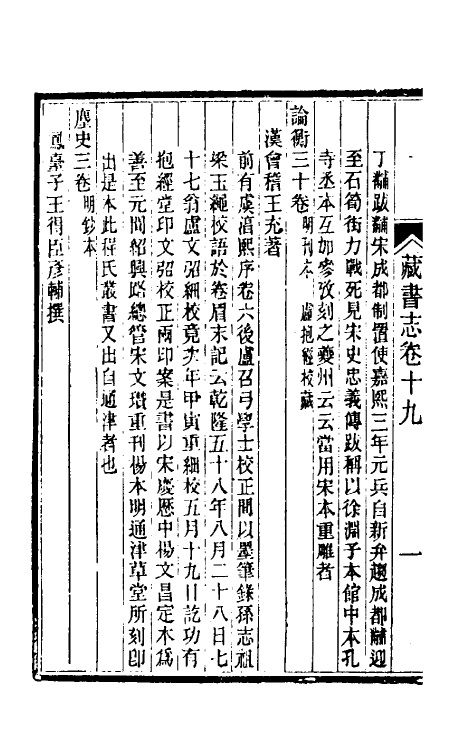 藏書志卷十九
一
丁黼跋黼宋成都制置使嘉熙三年元兵自新井趨成都黼迎
至石筍街力戰死見宋史忠義傳跋稱以徐淵子本館中本孔
寺丞本互加參攷刻之夔州云云當用宋本重雕者
論衡三十卷明刊本 盧抱經校藏
漢會稽王充著
前有虞淯熙序卷六後盧召弓學士校正間以墨筆錄孫志祖
梁玉繩校語於卷眉末記云乾隆五十八年八月二十八日七
十七翁盧文弨細校竟次年甲寅重細校五月十九日訖功有
抱經堂印文弨校正兩印案是書以宋慶歷中楊文昌定本為
善至元間紹興路總管宋文瓚重刊楊本明通津草堂所刻卽
出是本此程氏叢書又出自通津者也
麈史三卷明鈔本
鳳臺子王得臣彥輔撰